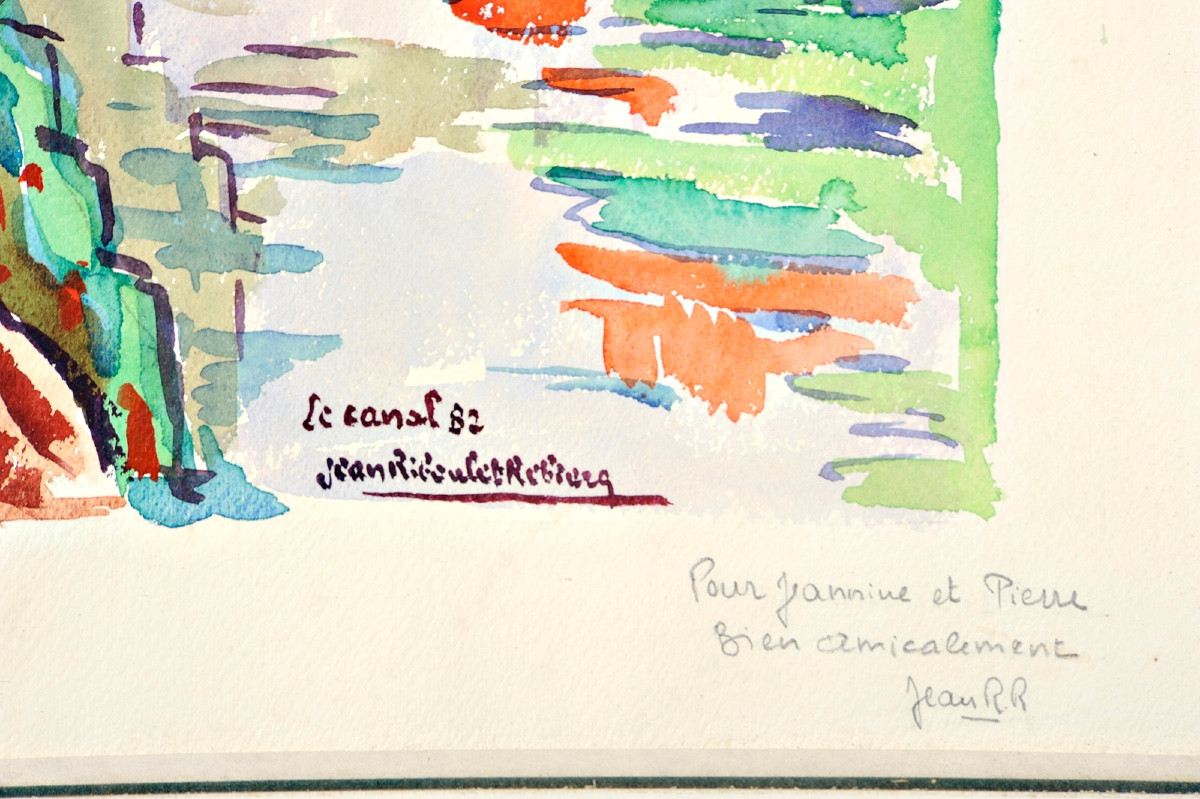 Le canal 82
Jean Rigoulet Rebierg
Pour Jeannine et Pierre
Bien amicalement
Jean R.R